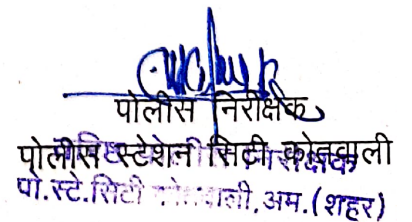 पोलीस निरीक्षक
पोलीस स्टेशन सिटी कोतवाली
पो.स्टे.सिटी कोतवाली, अम. (शहर)